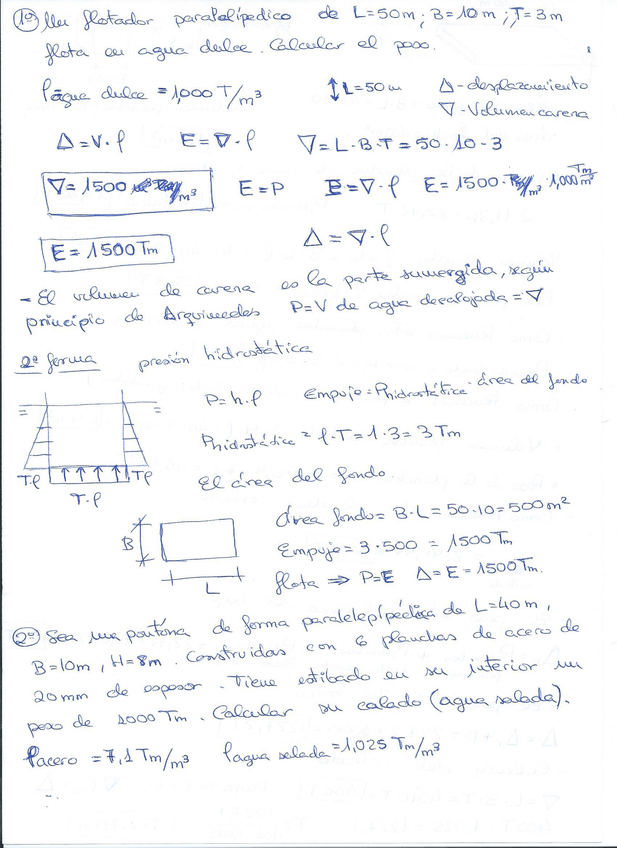 1º) Un flotador paralelípedico de L=50m; B=10m; T=3m
flota en agua dulce. Calcular el peso.
ρagua dulce = 1,000 T/m³ ↕L=50m Δ-desplazamiento
∇-Volumen carena
Δ=V·ρ E=∇·ρ ∇=L·B·T=50·10·3
∇=1500 m³ E=P E=∇·ρ E=1500 m³·1,000 Tm/m³
E=1500Tm Δ=∇·ρ
- El volumen de carena es la parte sumergida, según
principio de Arquimedes P=V de agua desalojada=∇
2ª forma presión hidrostática
P=h·ρ Empuje=Phidrostática·área del fondo
Phidrostática=ρ·T=1·3=3Tm
T·ρ T·ρ
T·ρ
El área del fondo
Área fondo=B·L=50·10=500m²
B
Empuje=3·500=1500Tm
flota ⇒ P=E Δ=E=1500Tm.
L
2º) Sea una pontona de forma paralelepipédica de L=40m,
B=10m, H=8m. Construidas con 6 planchas de acero de
20mm de espesor. Tiene estibado en su interior un
peso de 1000Tm. Calcular su calado (agua salada).
ρacero=7,1Tm/m³ ρagua salada=1,025Tm/m³